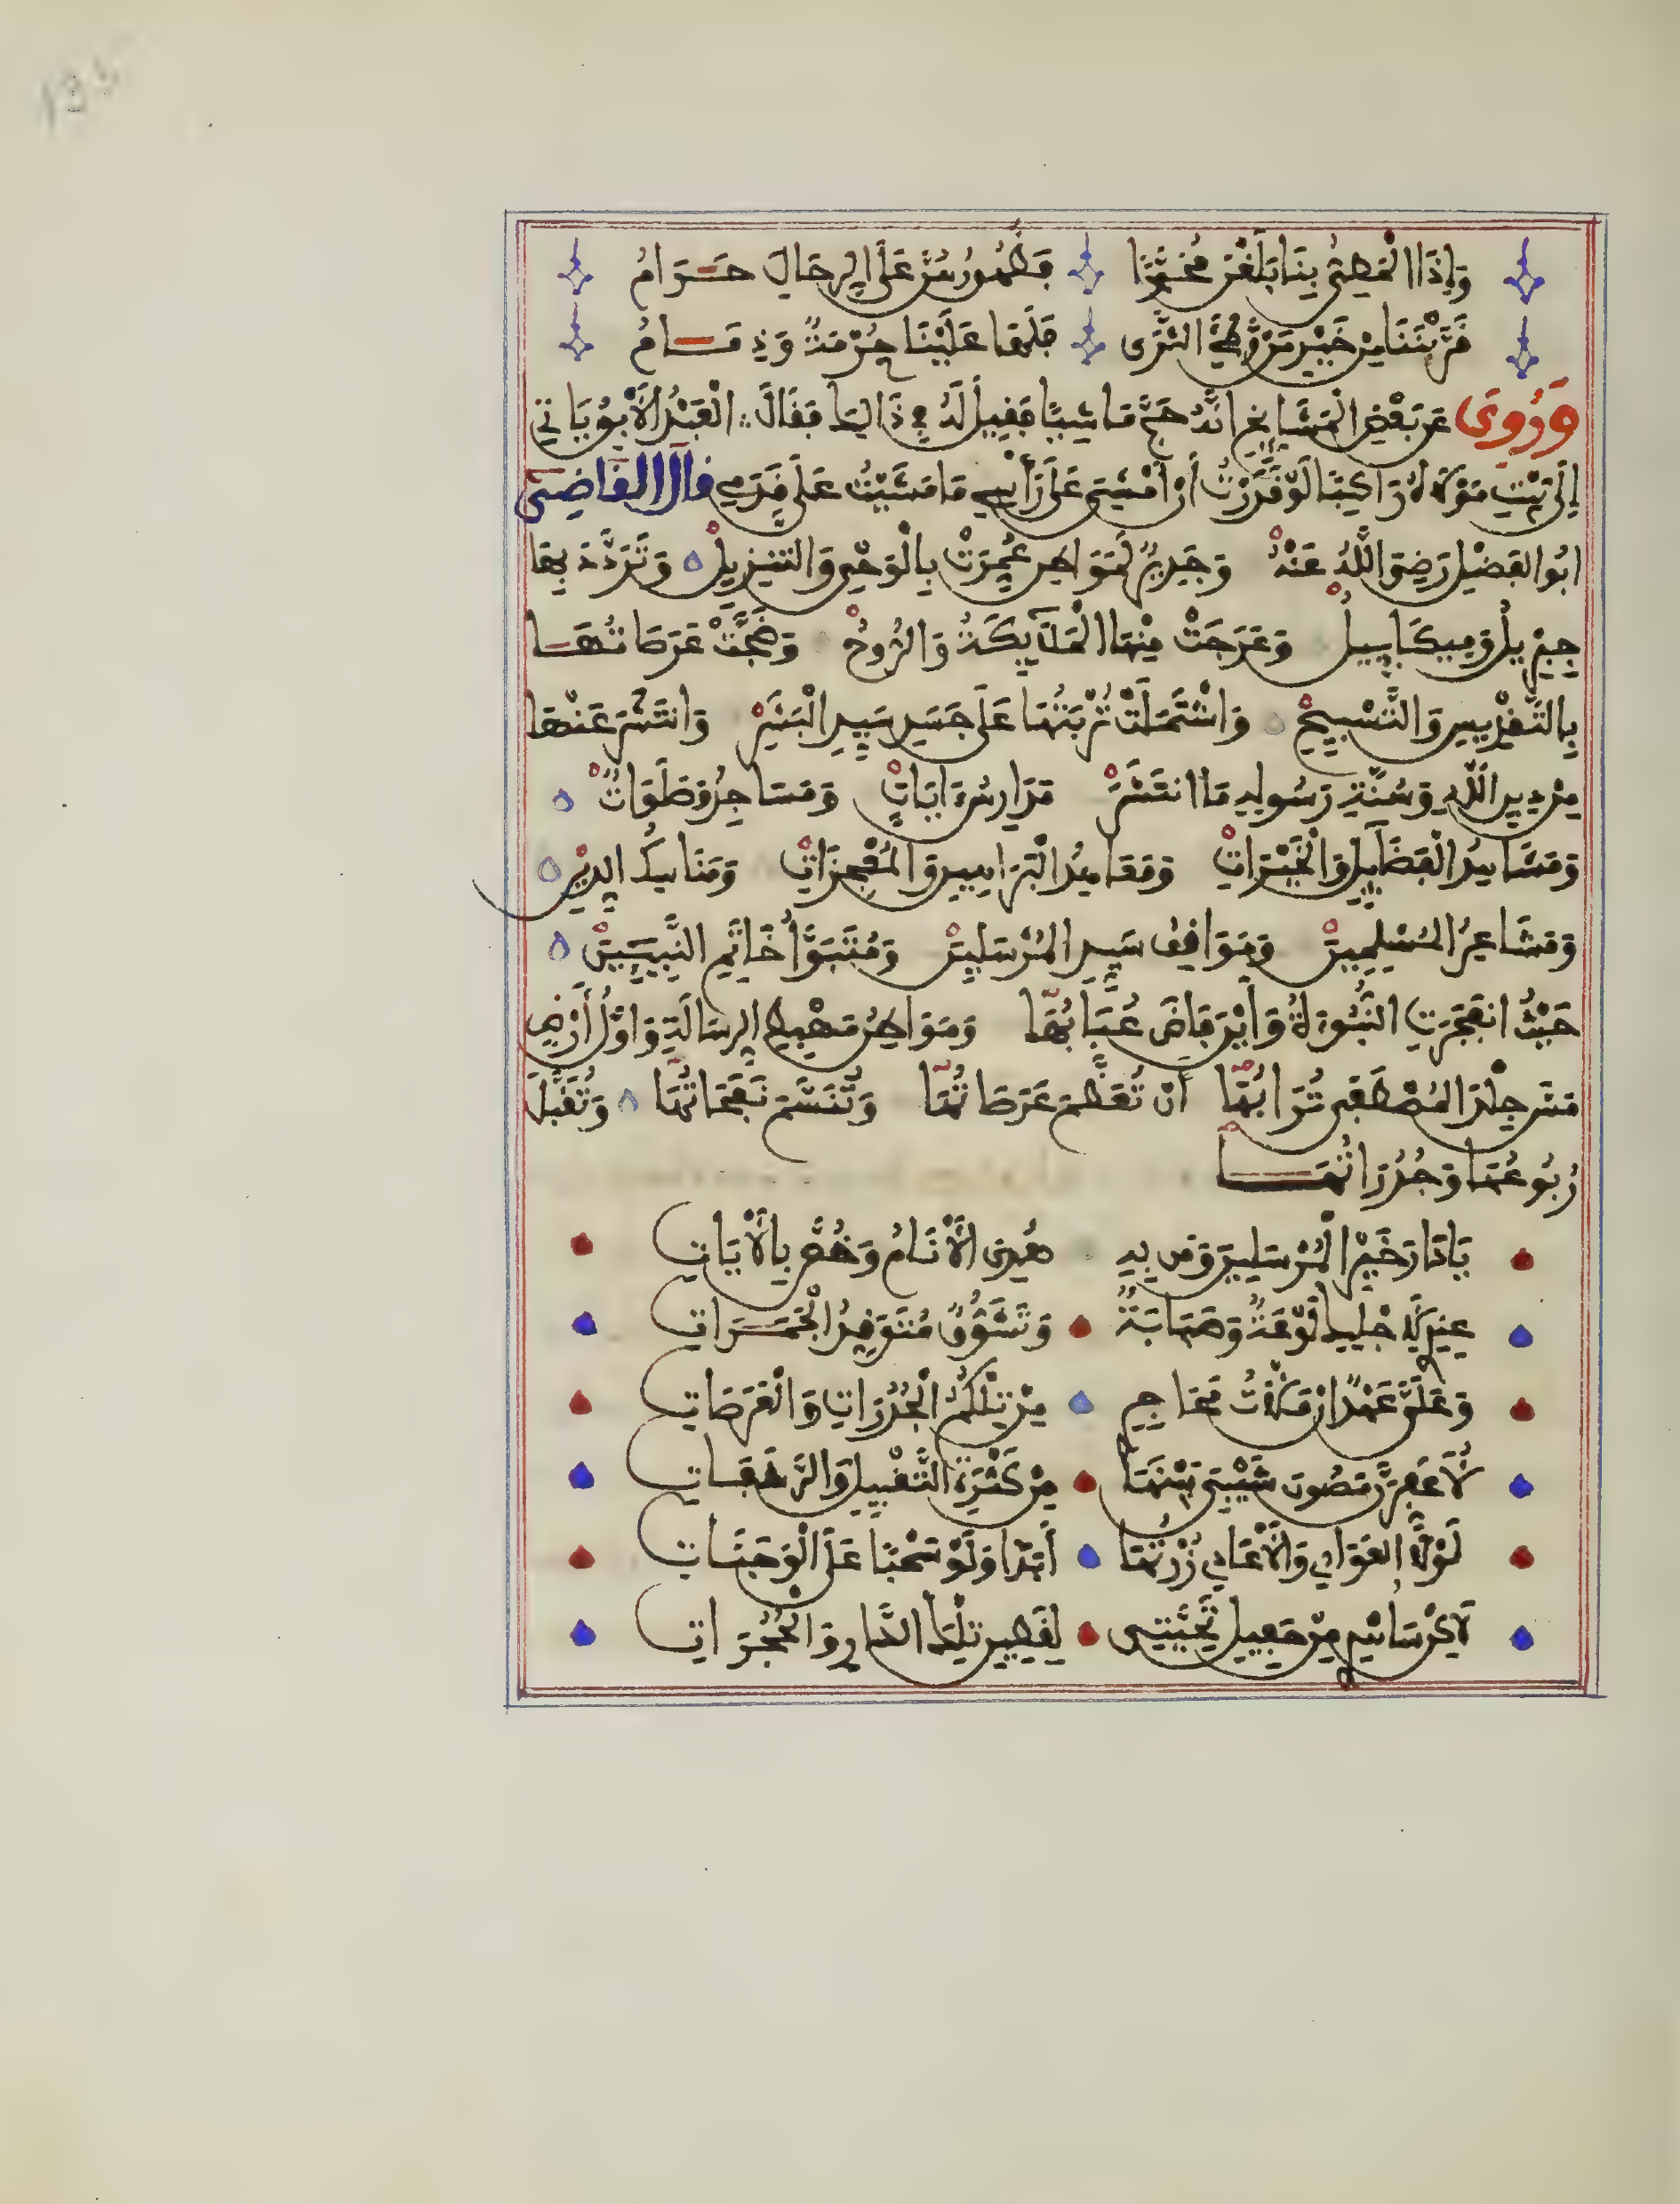 وَإِذَا الْمَطِيُّ بِنَا بَلَغْنَ مُحَمَّدًا فَظُهُورُهُنَّ عَلَى الرِّحَالِ حَرَامُ
قَرَّبْنَنَا مِنْ خَيْرِ مَنْ وَطِئَ الثَّرَى فَلَهَا عَلَيْنَا حُرْمَةٌ وَذِمَامُ
وَرُوِيَ عَنْ بَعْضِ الْمَشَايِخِ أَنَّهُ حَجَّ مَاشِيًا فَقِيلَ لَهُ فِي ذَالِكَ فَقَالَ الْعَبْدُ الْآبِقُ يَاتِي
إِلَى بَيْتِ مَوْلَاهُ رَاكِبًا لَوْ قَدَرْتُ أَنْ أَمْشِيَ عَلَى رَأْسِي مَا مَشَيْتُ عَلَى قَدَمِي قَالَ الْقَاضِي
أَبُو الْفَضْلِ رَضِيَ اللَّهُ عَنْهُ وَجَدِيرٌ لِمَوَاطِنَ عُمِرَتْ بِالْوَحْيِ وَالتَّنْزِيلْ وَتَرَدَّدَ بِهَا
جِبْرِيلُ وَمِيكَايِيلُ وَعَرَجَتْ مِنْهَا الْمَلَايِكَةُ وَالرُّوحْ وَضَجَّتْ عَرَصَاتُهَا
بِالتَّقْدِيسِ وَالتَّسْبِيحْ وَاشْتَمَلَتْ تُرْبَتُهَا عَلَى جَسَدِ سَيِّدِ الْبَشَرْ وَانْتَشَرَ عَنْهَا
مِنْ دِينِ اللَّهِ وَسُنَّةِ رَسُولِهِ مَا انْتَشَرْ مَدَارِسُ ءَايَاتٍ وَمَسَاجِدُ وَصَلَوَاتٌ
وَمَشَاهِدُ الْفَضَايِلِ وَالْخَيْرَاتْ وَمَعَاهِدُ الْبَرَاهِينِ وَالْمُعْجِزَاتْ وَمَنَاسِكُ الدِّينْ
وَمَشَاعِرُ الْمُسْلِمِينْ وَمَوَاقِفُ سَيِّدِ الْمُرْسَلِينْ وَمُتَبَوَّأُ خَاتَمِ النَّبِيِّينْ
حَيْثُ انْفَجَرَتِ النُّبُوءَةُ وَأَيْنَ فَاضَ عُبَابُهَا وَمَوَاطِنُ مَهْبِطِ الرِّسَالَةِ وَأَوَّلُ أَرْضٍ
مَسَّ جِلْدَ الْمُصْطَفَى تُرَابُهَا أَنْ تُعَظَّمَ عَرَصَاتُهَا وَتُتَنَسَّمَ نَفَحَاتُهَا وَتُقَبَّلَ
رُبُوعُهَا وَجُدُرَاتُهَا
يَا دَارَ خَيْرِ الْمُرْسَلِينَ وَمَنْ بِهِ هُدِيَ الْأَنَامُ وَخُصَّ بِالْآيَاتِ
عِنْدِي لِأَجْلِكِ لَوْعَةٌ وَصَبَابَةٌ وَتَشَوُّقٌ مُتَوَقِّدُ الْجَمَرَاتِ
وَعَلَيَّ عَهْدٌ إِنْ مَلَأْتُ مَحَاجِرِي مِنْ تِلْكُمُ الْجُدُرَاتِ وَالْعَرَصَاتِ
لَأُعَفِّرَنَّ مَصُونَ شَيْبِي بَيْنَهَا مِنْ كَثْرَةِ التَّقْبِيلِ وَالرَّشَفَاتِ
لَوْلَا الْعَوَادِي وَالْأَعَادِي زُرْتُهَا أَبَدًا وَلَوْ سَحْبًا عَلَى الْوَجَنَاتِ
لَاكِنْ سَأُهْدِي مِنْ حَفِيلِ تَحِيَّتِي لِقَطِينِ تِلْكَ الدَّارِ وَالْحُجُرَاتِ